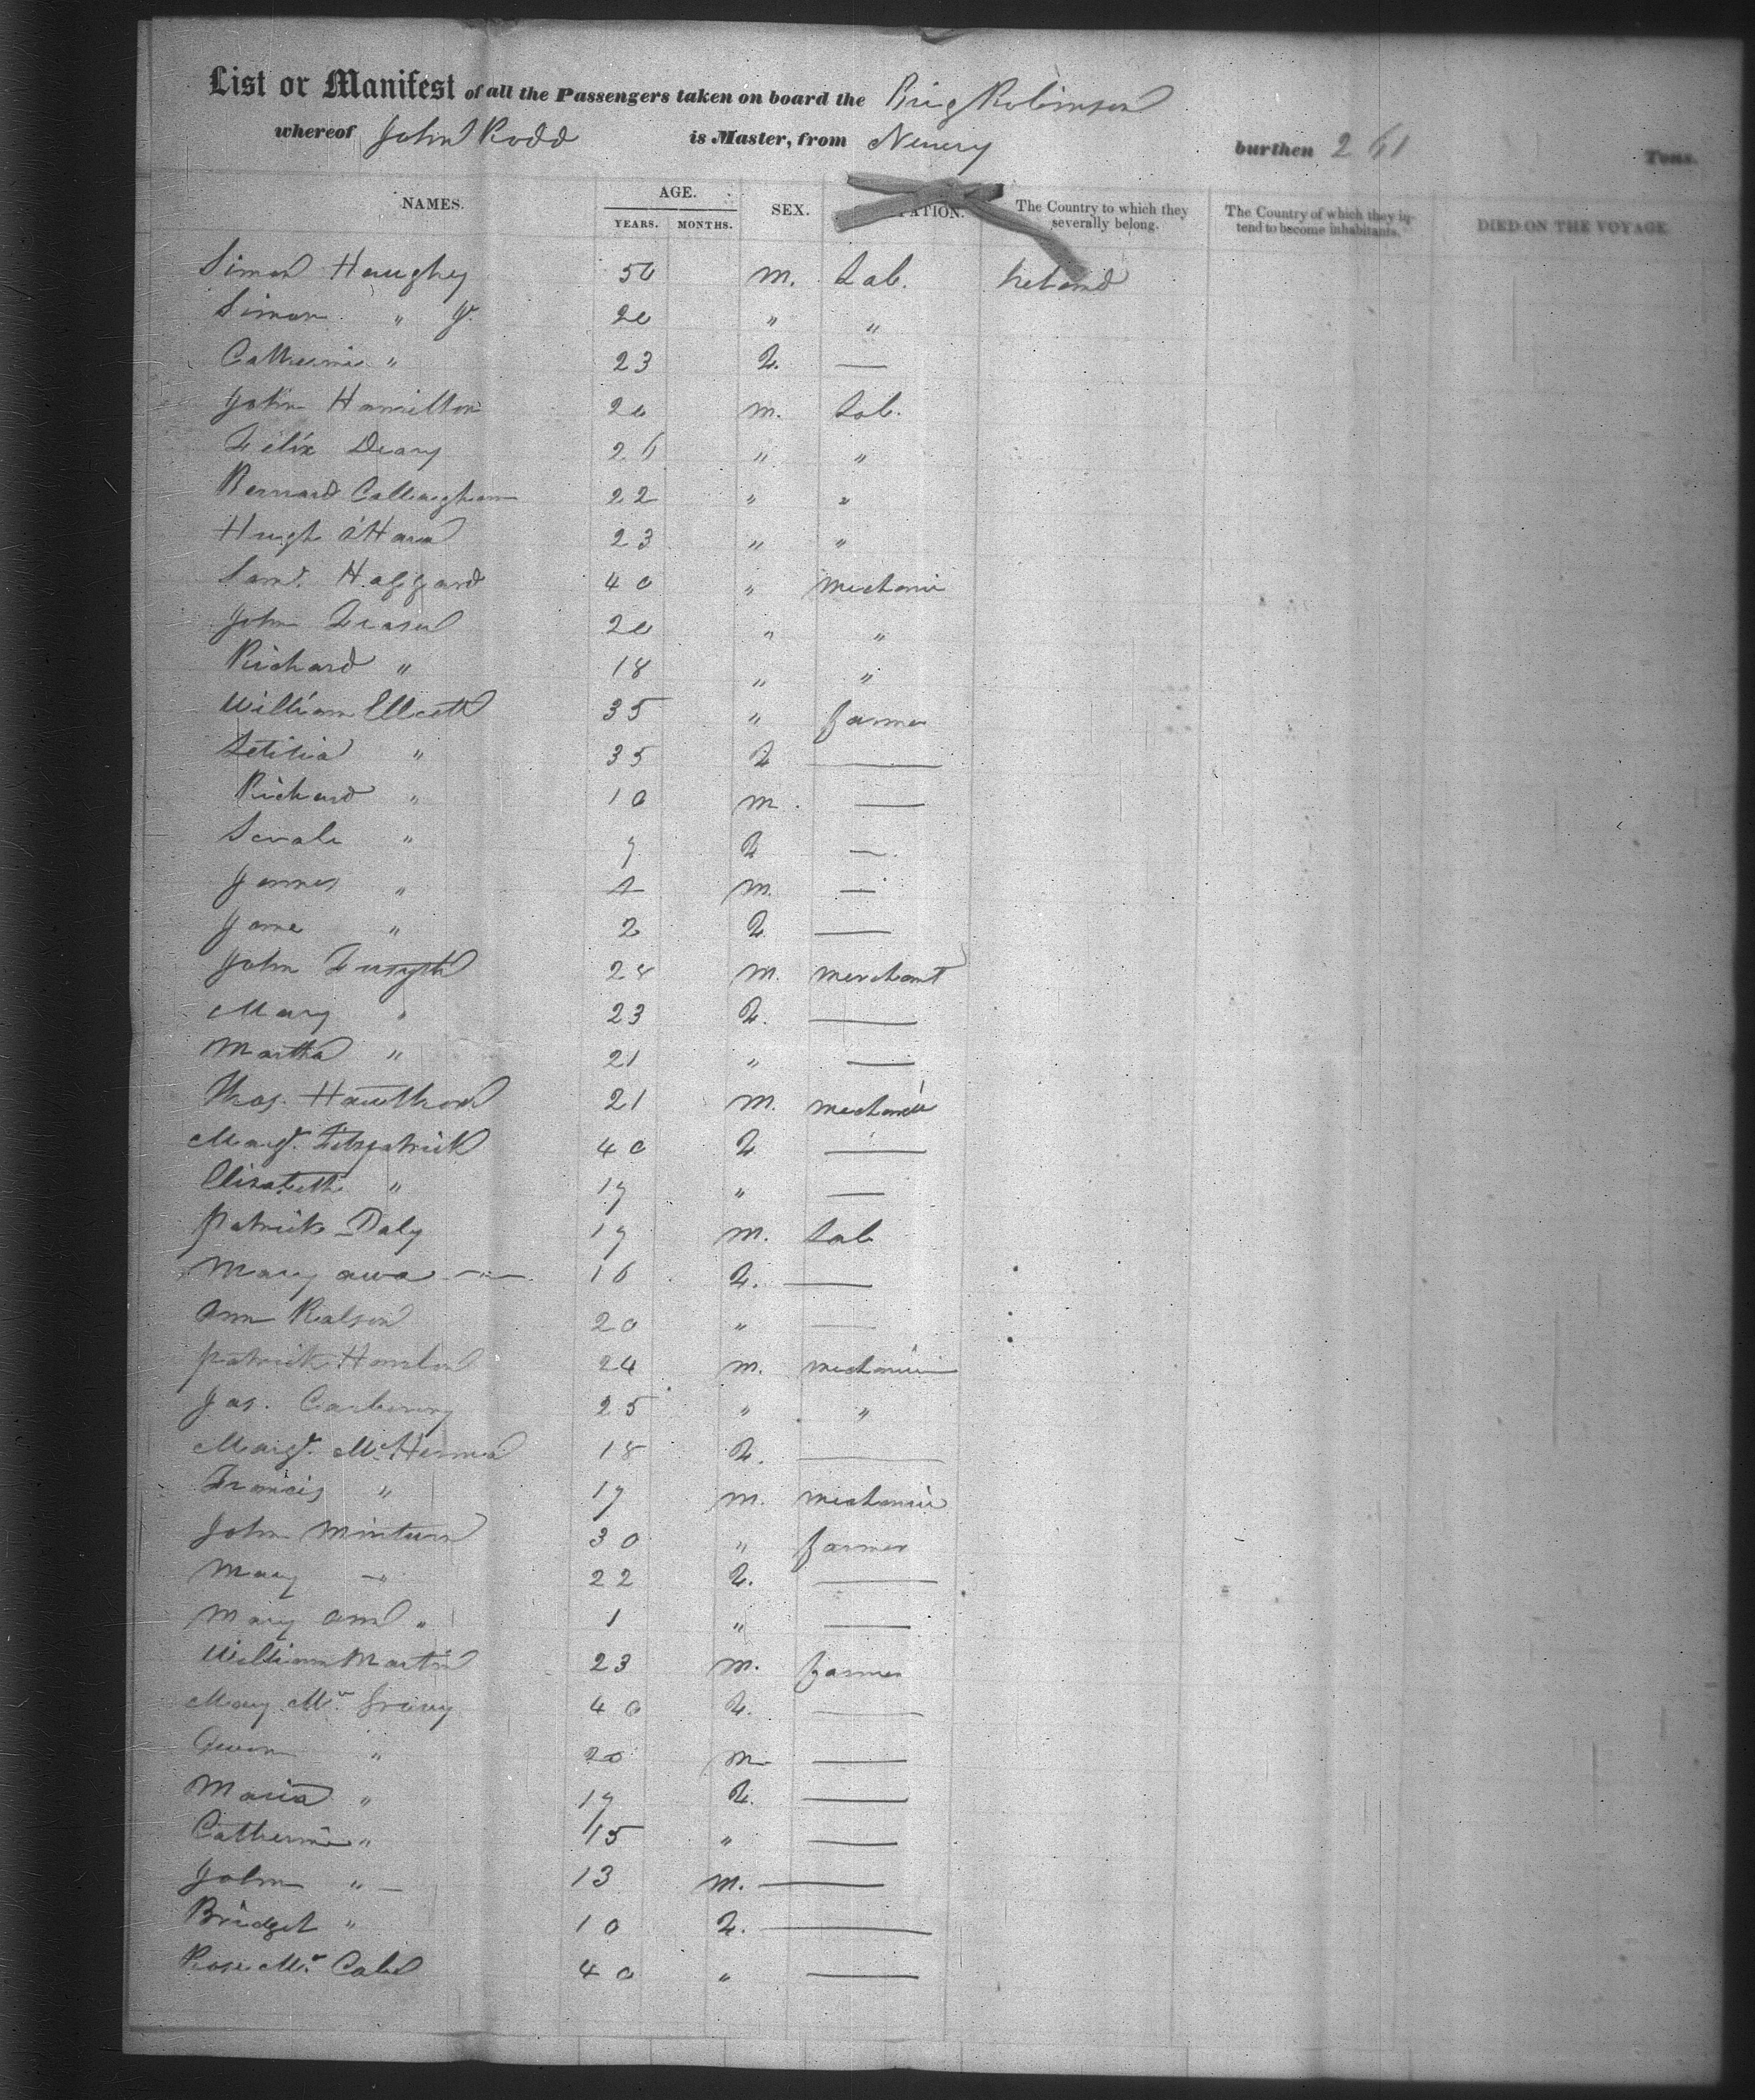 List or Manifest of all the Passengers taken on board the Brig Robinson
whereof John Rodd is Master, from Newry burthen 261 Tons.
NAMES. AGE. YEARS. MONTHS. SEX. PATION. The Country to which they severally belong. The Country of which they intend to become inhabitants. DIED ON THE VOYAGE
Simon Haughey 50 m. Lab. Ireland
Simon " Jr. 20 " "
Catherine " 23 F. —
John Hamilton 20 m. Lab.
Felix Deary 26 " "
Bernard Callaghan 22 " "
Hugh O'Hara 23 " "
Saml. Haggard 40 " mechanic
John Fraser 20 " "
Richard " 18 " "
William Ellcott 35 " farmer
Letitia " 35 F —
Richard " 10 m. —
Sarah " 7 F —
James " m. —
Jane " 2 F —
John Forsyth 28 m. merchant
Mary " 23 F. —
Martha " 21 " —
Thos. Hawthorn 21 m. mechanic
Margt. Fitzpatrick 40 F —
Elizabeth " 17 " —
Patrick Daly 17 m. Lab
Mary " 16 F. —
Ann Ralson 20 " —
Patrick Hanlon 24 m. mechanic
Jas. Carberry 25 " "
Margt. Mc 18 F. —
Francis " 17 m. mechanic
John Minturn 30 " farmer
Mary " 22 F. —
Mary Ann " 1 " —
William Martin 23 m. farmer
Mary Mc 40 F. —
Owen " 20 m —
Maria " 17 F. —
Catherine " 15 " —
John " — 13 m. —
Bridget " 10 F. —
Rose Mc Cabe 40 " —